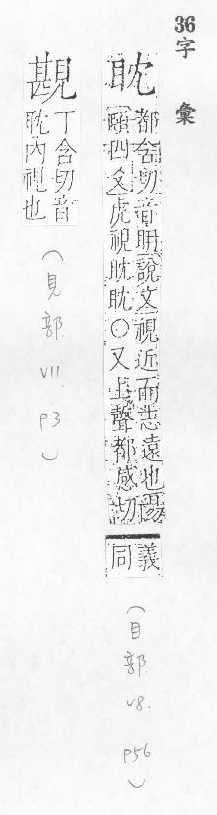 36字彙
眈
都含切音耼說文視近而志遠也易
頤四爻虎視眈眈○又上聲都感切
義
同
(目部 V8. P56)
丁含切音
眈內視也
(見部. VII. P3)